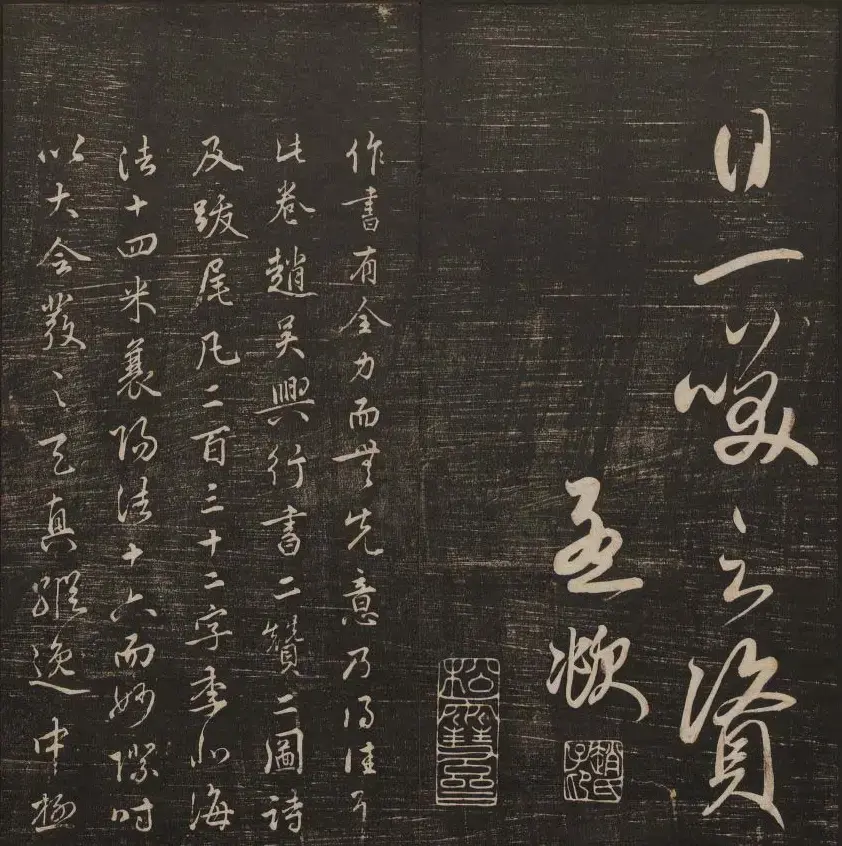 日一笑之資
孟頫
趙氏子昂
松雪齋
作書有全力而無先意乃得佳耳
此卷趙吳興行書二贊二圖詩
及跋尾凡二百三十二字李北海
法十四米襄陽法十六而妙際時
以大令發之天真縱逸中極